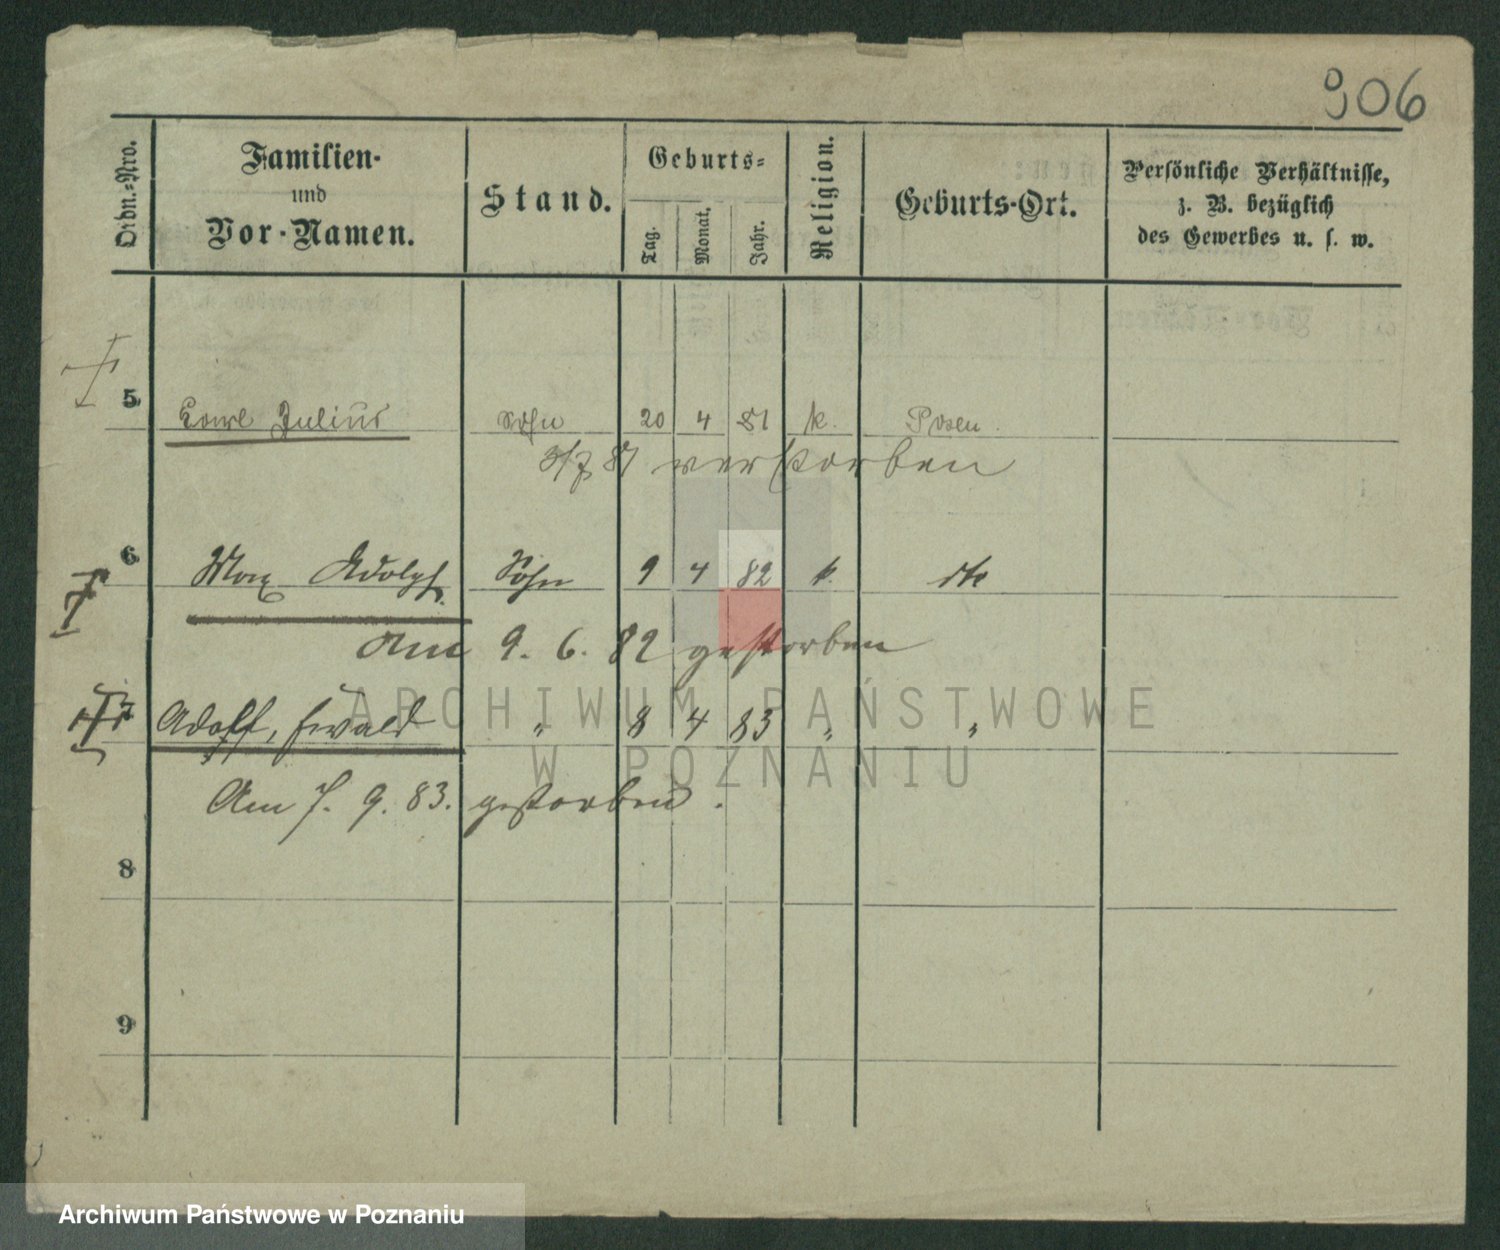 906
Ordn.-Nro.
Familien-
und
Vor-Namen.
Stand.
Geburts-
Tag.
Monat.
Jahr.
Religion.
Geburts-Ort.
Persönliche Verhältnisse,
z. B. bezüglich
des Gewerbes u. s. w.
5 Carl Julius Sohn 20 4 81 k. Posen.
3/7 81 verstorben
6 Max Adolph Sohn 9 4 82 k. dto
Am 9. 6. 82 gestorben
7 Adolf, Ewald " 8 4 83 " "
Am 7. 9. 83. gestorben.
8
9
ARCHIWUM PAŃSTWOWE
W POZNANIU
Archiwum Państwowe w Poznaniu